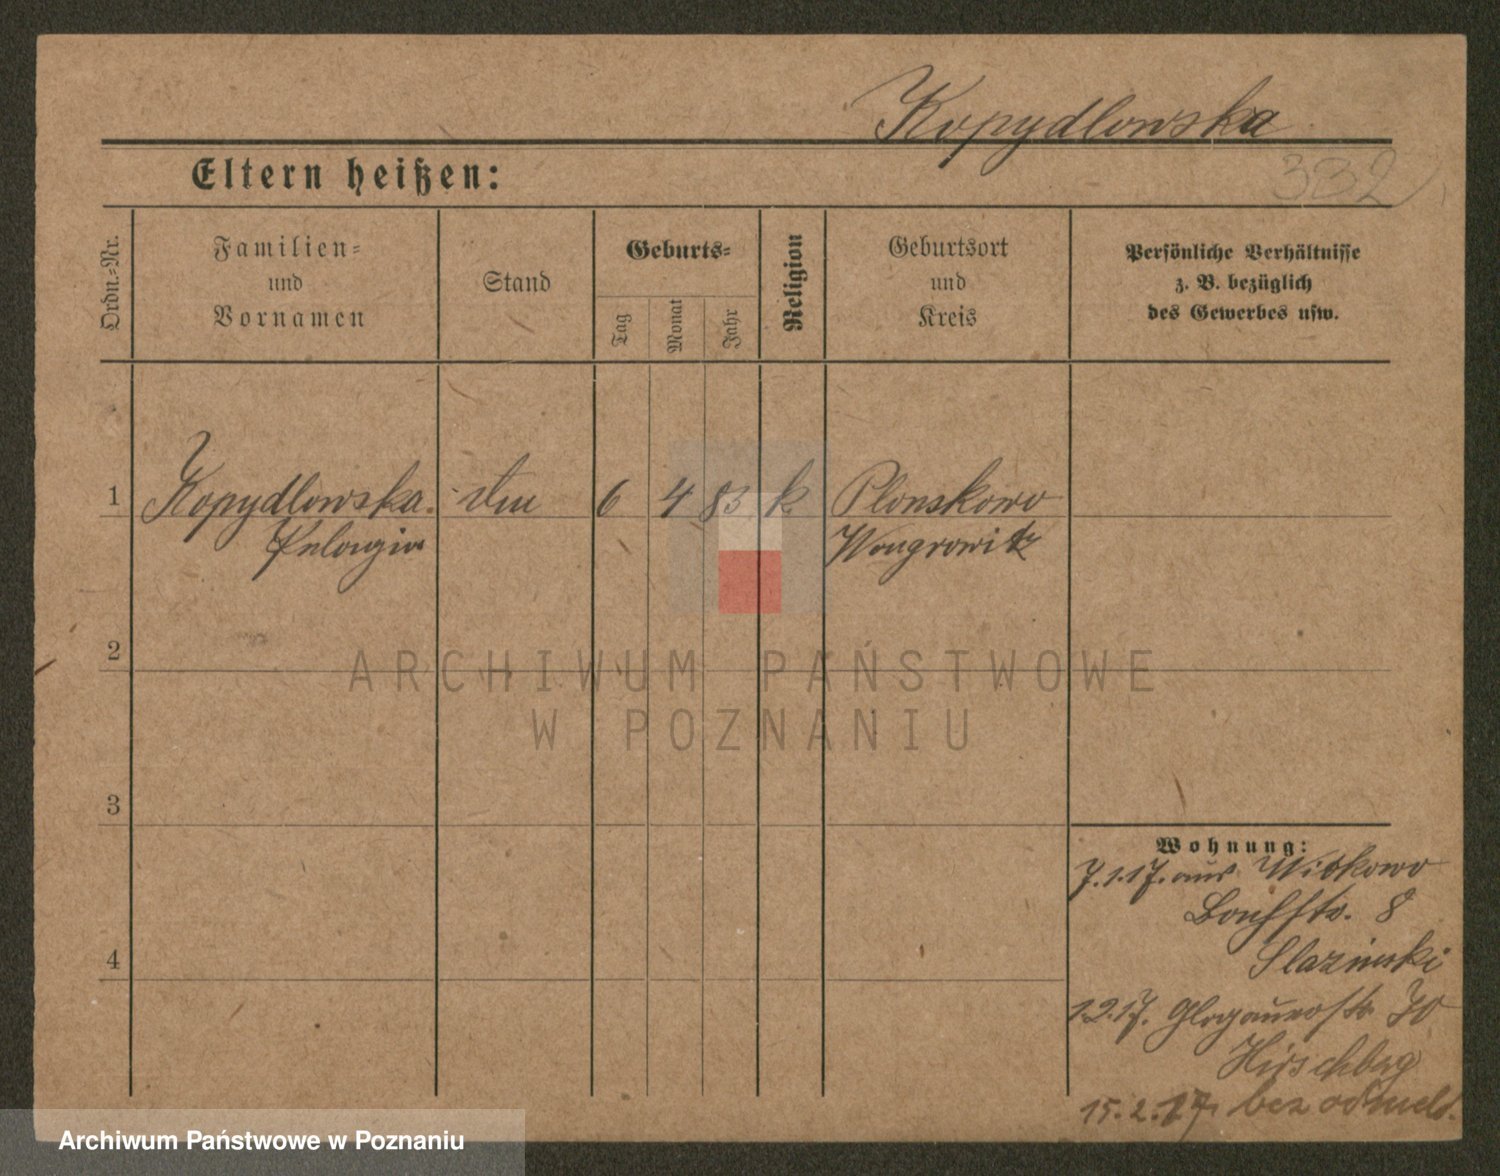 Kopydlowska
332
Eltern heißen:
Ordn.-Nr.
Familien-
und
Vornamen
Stand
Geburts-
Tag
Monat
Jahr
Religion
Geburtsort
und
Kreis
Persönliche Verhältnisse
z. B. bezüglich
des Gewerbes usw.
1 Kopydlowska 6 4 83 k. Plonskowo
Pelagia Wongrowitz
2
3
4
Wohnung:
7.1.17. aus Witkowo
8
Slazinski
1.2.17. Glogauerstr 70
Hirschberg
15.2.17 bez odmeld.
ARCHIWUM PAŃSTWOWE
W POZNANIU
Archiwum Państwowe w Poznaniu